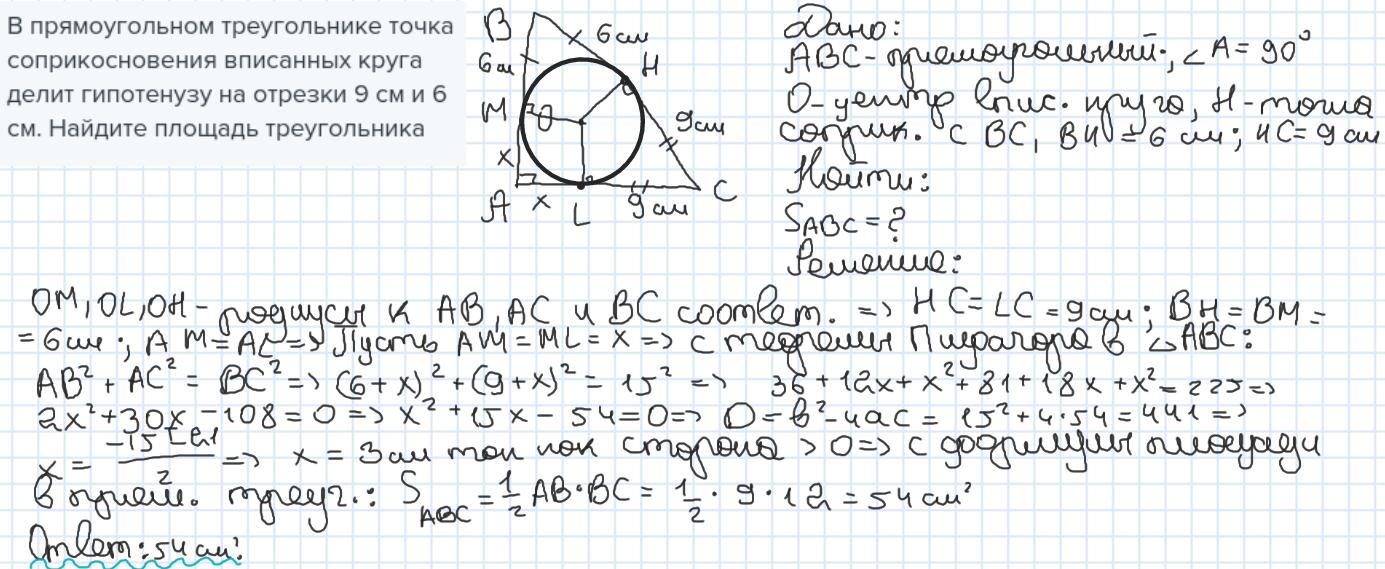 В прямоугольном треугольнике точка
соприкосновения вписанных круга
делит гипотенузу на отрезки 9 см и 6
см. Найдите площадь треугольника
B
6 см
6 см
H
M
O
9 см
x
A
x
L
9 см
C
Дано:
ABC - прямоугольный; ∠A = 90°
O - центр впис. круга, H - точка
соприк. с BC, BH = 6 см; HC = 9 см
Найти:
SABC = ?
Решение:
OM, OL, OH - радиусы к AB, AC и BC соответ. => HC = LC = 9 см; BH = BM =
= 6 см; AM = AL => Пусть AM = ML = x => с теоремы Пифагора в △ABC:
AB² + AC² = BC² => (6 + x)² + (9 + x)² = 15² => 36 + 12x + x² + 81 + 18x + x² = 225 =>
2x² + 30x - 108 = 0 => x² + 15x - 54 = 0 => D = b² - 4ac = 15² + 4·54 = 441 =>
x = (-15 ± 21)/2 => x = 3 см так как сторона > 0 => с формулы площади
в прям. треуг.: SABC = 1/2 AB·BC = 1/2 · 9 · 12 = 54 см²
Ответ: 54 см².